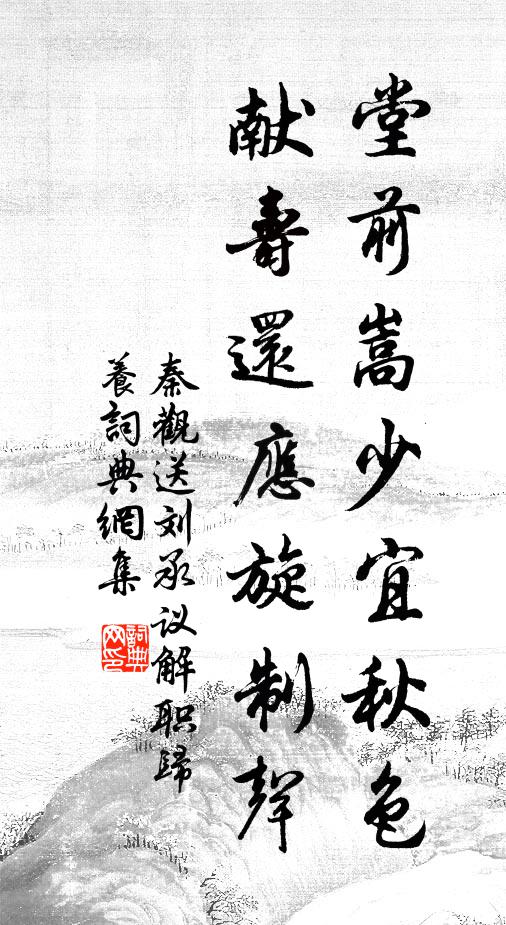 堂前嵩少宜秋色
献壽還應旋制聲
秦觀送刘承议解职歸
養詞典網集
詞典
网印